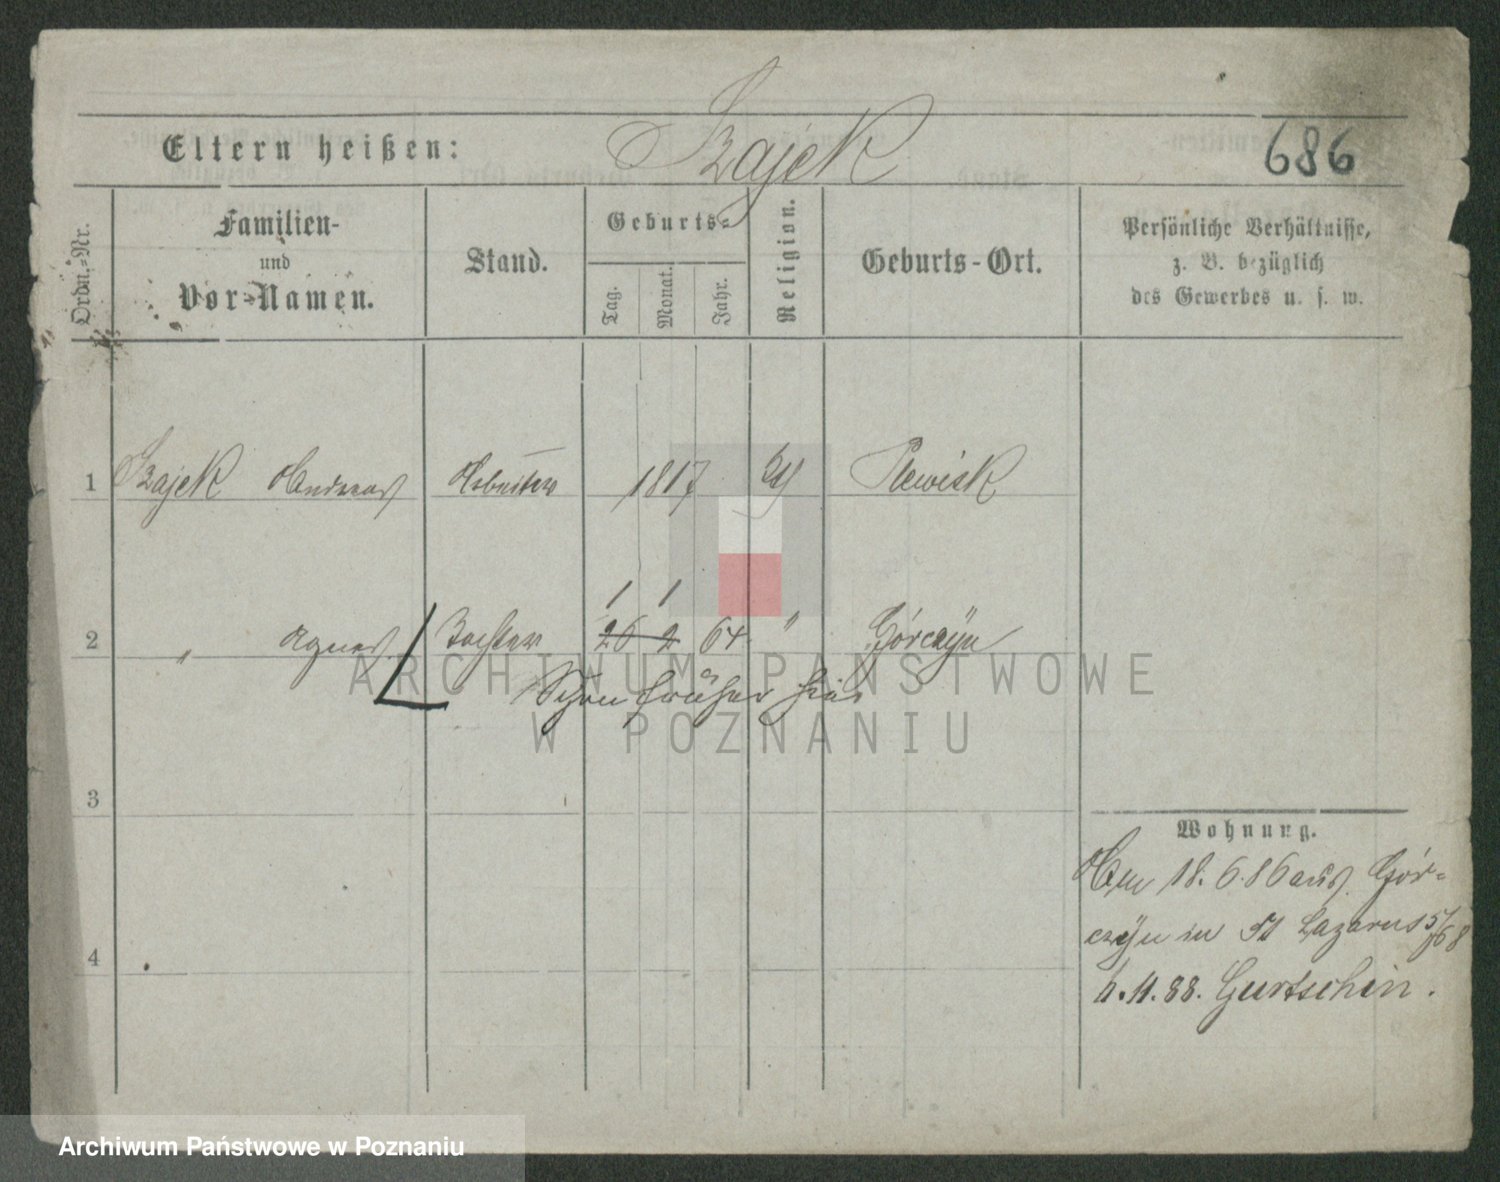 Eltern heißen: Szajek 686
Ordn.-Nr.
Familien-
und
Vor-Namen.
Stand.
Geburts-
Tag.
Monat.
Jahr.
Religion.
Geburts-Ort.
Persönliche Verhältnisse,
z. B. bezüglich
des Gewerbes u. s. w.
1 Szajek Andreas Arbeiter 1817 Plewisk
1 1
2 " Agnes Tochter 26 2 64 " Górczyn
Schon früher hier
3
Wohnung.
Am 18.6.86 aus Gór-
czyn in St Lazarus
4
4.11.88. Gurtschin.
ARCHIWUM PAŃSTWOWE
W POZNANIU
Archiwum Państwowe w Poznaniu